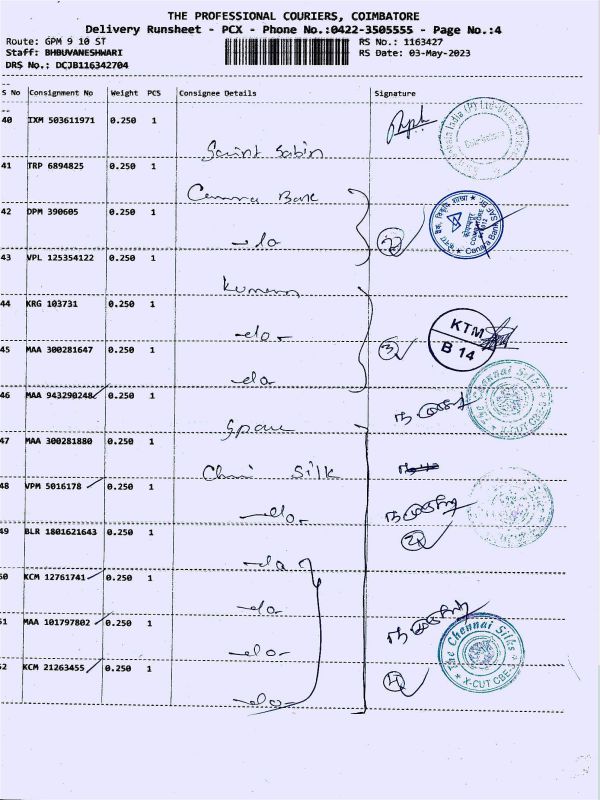 THE PROFESSIONAL COURIERS, COIMBATORE
Delivery Runsheet - PCX - Phone No.:0422-3505555 - Page No.:4
Route: GPM 9 10 ST
RS No.: 1163427
Staff: BHBUVANESHWARI
RS Date: 03-May-2023
DRS No.: DCJB116342704
S No Consignment No Weight PCS Consignee Details Signature
40 IXM 503611971 0.250 1
Saint Sabin
41 TRP 6894825 0.250 1
Canara Bank
42 DPM 390605 0.250 1
-do
2
43 VPL 125354122 0.250 1
44 KRG 103731 0.250 1
-do-
KTM
B 14
45 MAA 300281647 0.250 1
3
-do
46 MAA 943290248 0.250 1
The Chennai Silks
X-CUT CBE-
47 MAA 300281880 0.250 1
Silk
48 VPM 5016178 0.250 1
-do-
2
49 BLR 1801621643 0.250 1
-do
50 KCM 12761741 0.250 1
-do-
51 MAA 101797802 0.250 1
-do-
The Chennai Silks
X-CUT CBE-
52 KCM 21263455 0.250 1
4
-do-